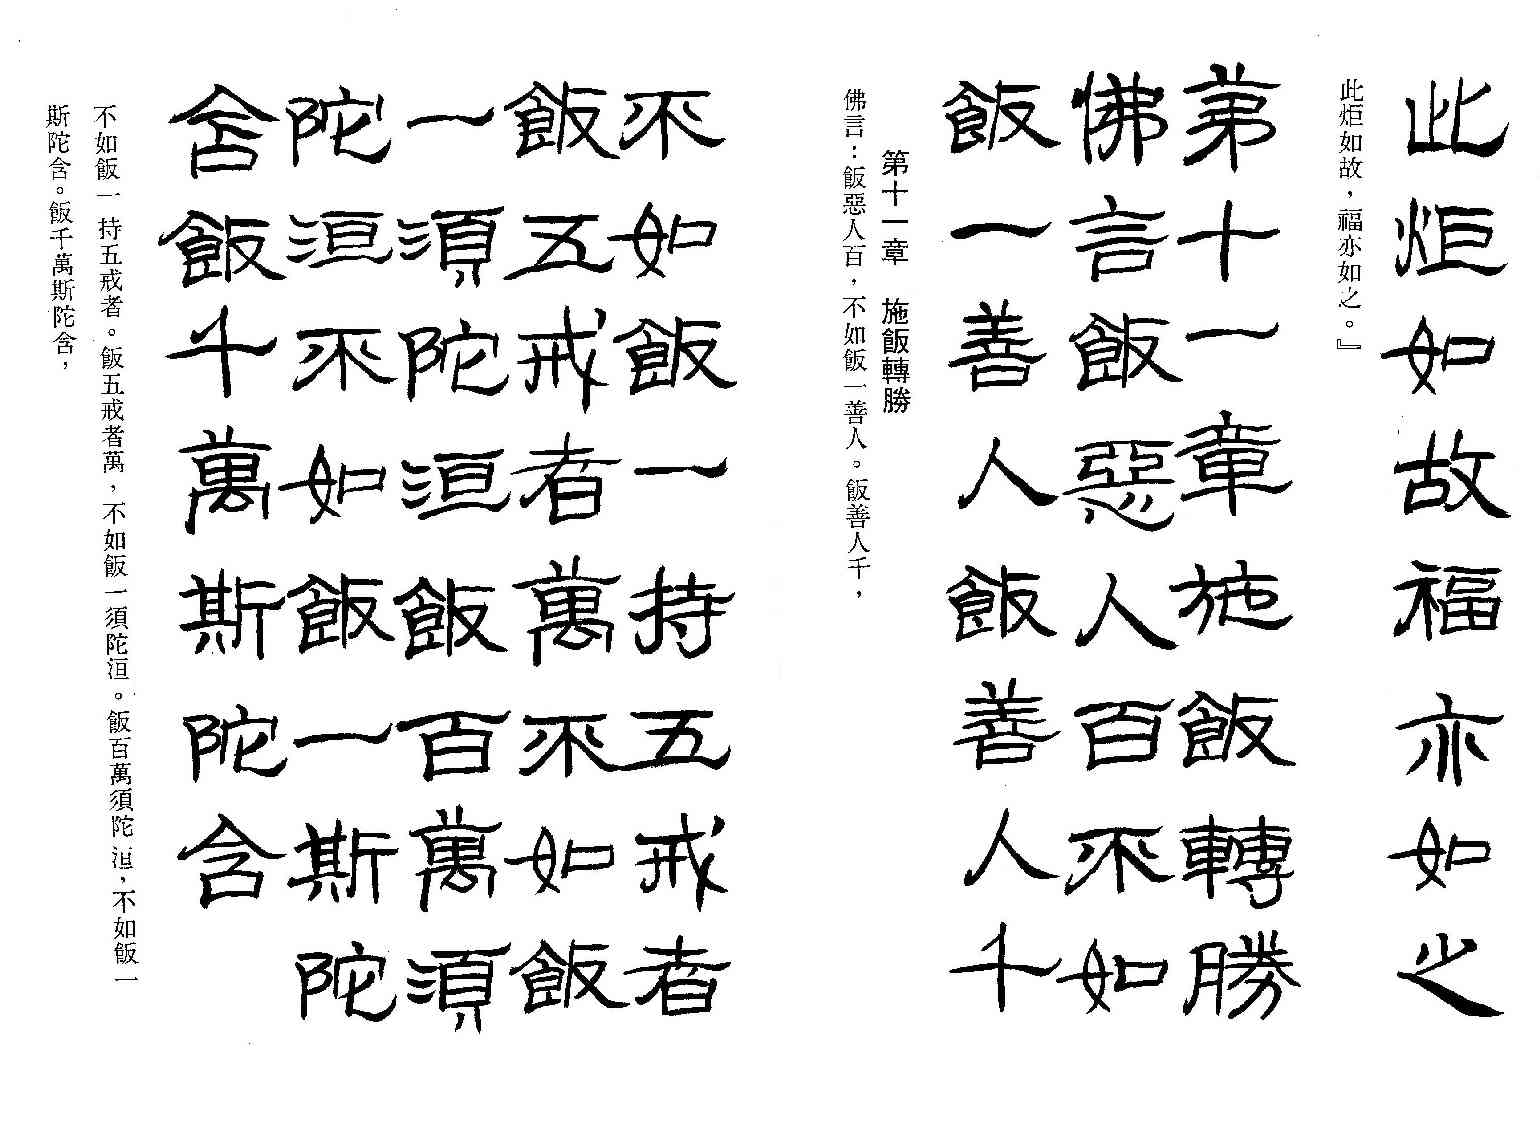 此炬如故福亦如之
此炬如故，福亦如之。』
第十一章施飯轉勝
佛言飯惡人百不如
飯一善人飯善人千
第十一章　施飯轉勝
佛言：飯惡人百，不如飯一善人。飯善人千，
不如飯一持五戒者
飯五戒者萬不如飯
一須陀洹飯百萬須
陀洹不如飯一斯陀
含飯千萬斯陀含
不如飯一持五戒者。飯五戒者萬，不如飯一須陀洹。飯百萬須陀洹，不如飯一
斯陀含。飯千萬斯陀含，